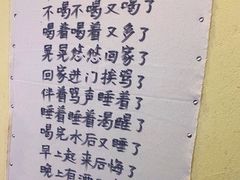 不喝不喝又喝了
喝着喝着又多了
晃晃悠悠回家了
回家进门挨骂了
伴着骂声睡着了
睡着睡着渴醒了
喝完水后又睡了
早上起来后悔了
晚上有酒